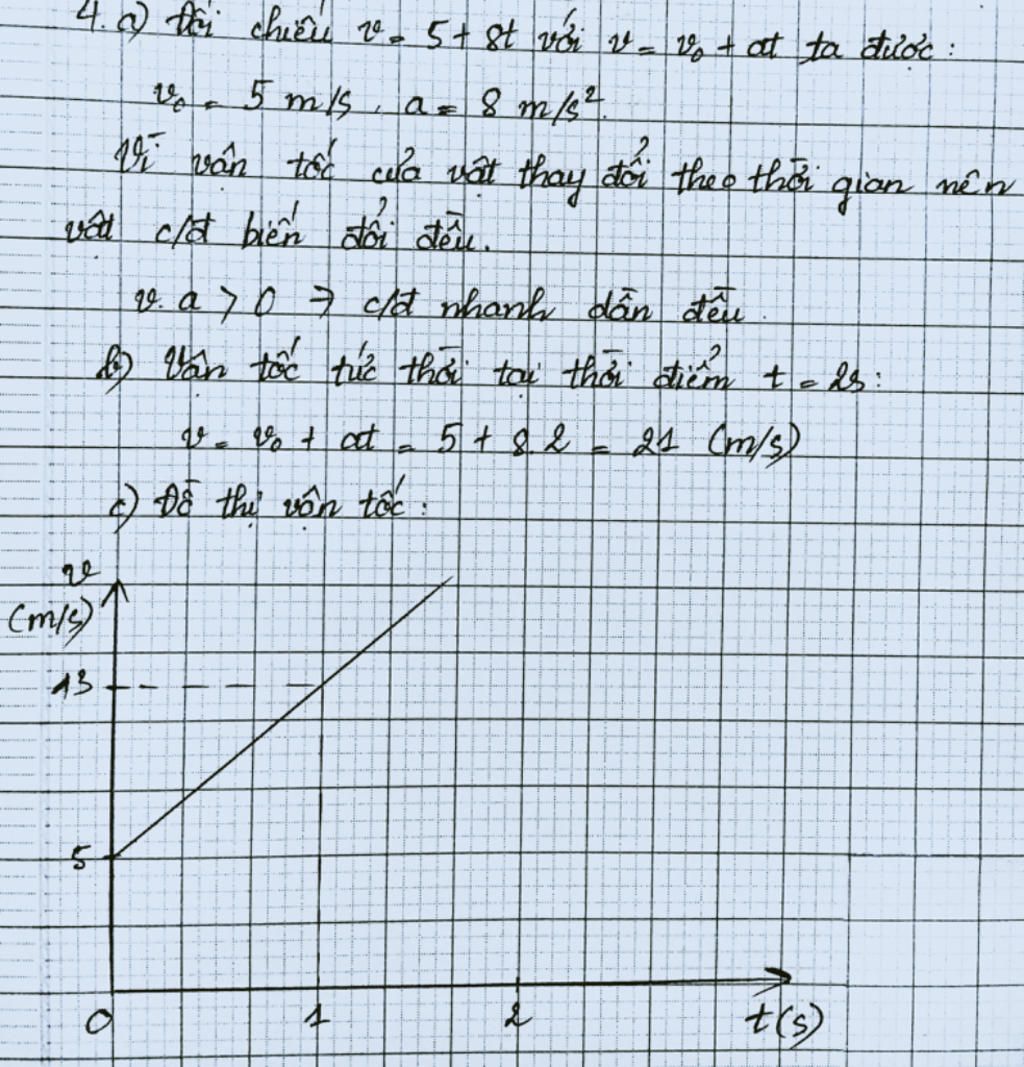 4. a) Đối chiếu v = 5 + 8t với v = v₀ + at ta được:
v₀ = 5 m/s, a = 8 m/s².
Vì vận tốc của vật thay đổi theo thời gian nên
vật c/đ biến đổi đều.
v.a > 0 → c/đ nhanh dần đều.
b) Vận tốc tức thời tại thời điểm t = 2s:
v = v₀ + at = 5 + 8.2 = 21 (m/s)
c) Đồ thị vận tốc:
v
(m/s)
13
5
0 1 2 t(s)